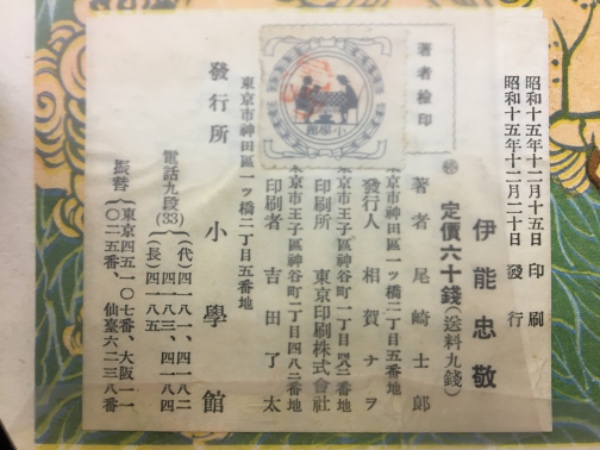 昭和十五年十二月十五日 印刷
昭和十五年十二月二十日 發行
伊能忠敬
定價六十錢(送料九錢)
著者檢印
小學館
著者 尾崎士郎
東京市神田區一ッ橋二丁目五番地
發行人 相賀ナヲ
東京市王子區神谷町一丁目
番地
印刷所 東京印刷株式會社
東京市王子區神谷町一丁目四八二番地
印刷者 吉田了太
東京市神田區一ッ橋二丁目五番地
發行所 小學館
電話九段(33)
(代)四一八一、四一八二
四一八三、四一八四
(長)四一八五
振替
東京四五一〇七番、大阪一一
〇二五番、仙臺六二三八番